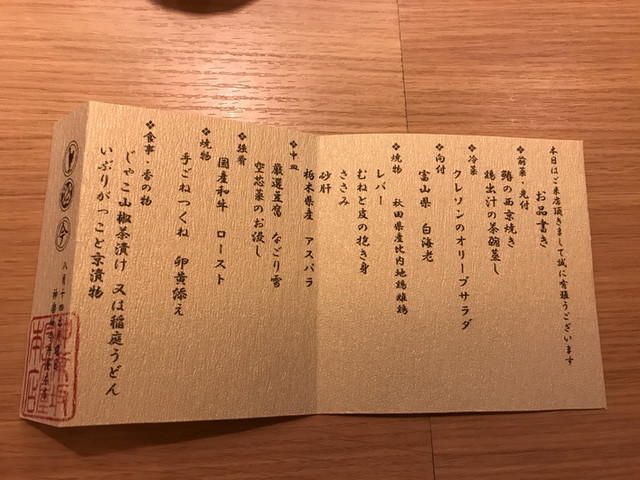 本日はご来店頂きまして誠に有難うございます
お品書き
❖前菜・先付
鰆の西京焼き
鶏出汁の茶碗蒸し
❖冷菜
クレソンのオリーブサラダ
❖向付
富山県 白海老
❖焼物 秋田県産比内地鶏雌鶏
レバー
むねと皮の抱き身
ささみ
砂肝
栃木県産 アスパラ
❖中皿
厳選豆腐 なごり雪
空芯菜のお浸し
❖強肴
国産和牛 ロースト
❖焼物
手ごねつくね 卵黄添え
❖食事・香の物
じゃこ山椒茶漬け 又は稲庭うどん
いぶりがっこと京漬物
今
八月十四